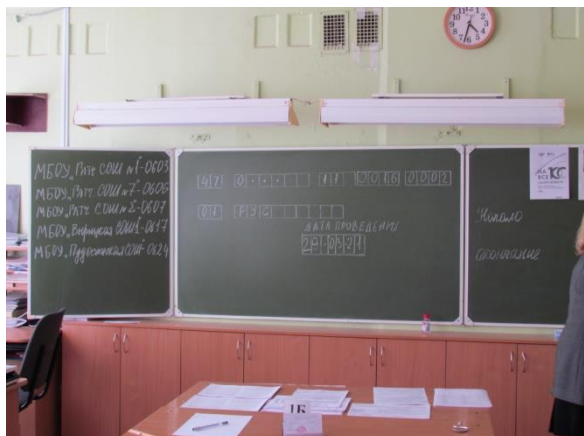 МБОУ„Гатч СОШ №1"-0603
МБОУ„Гатч. СОШ №7"-0606
МБОУ„Гатч. СОШ №8"-0607
МБОУ„Вырицкая СОШ1"-0617
МБОУ„Пудостьская СОШ"-0624
47 0 11 0016 0002
01 РУС
ДАТА ПРОВЕДЕНИЯ
Начало
окончание
НА
ВСЕ 100
1Б